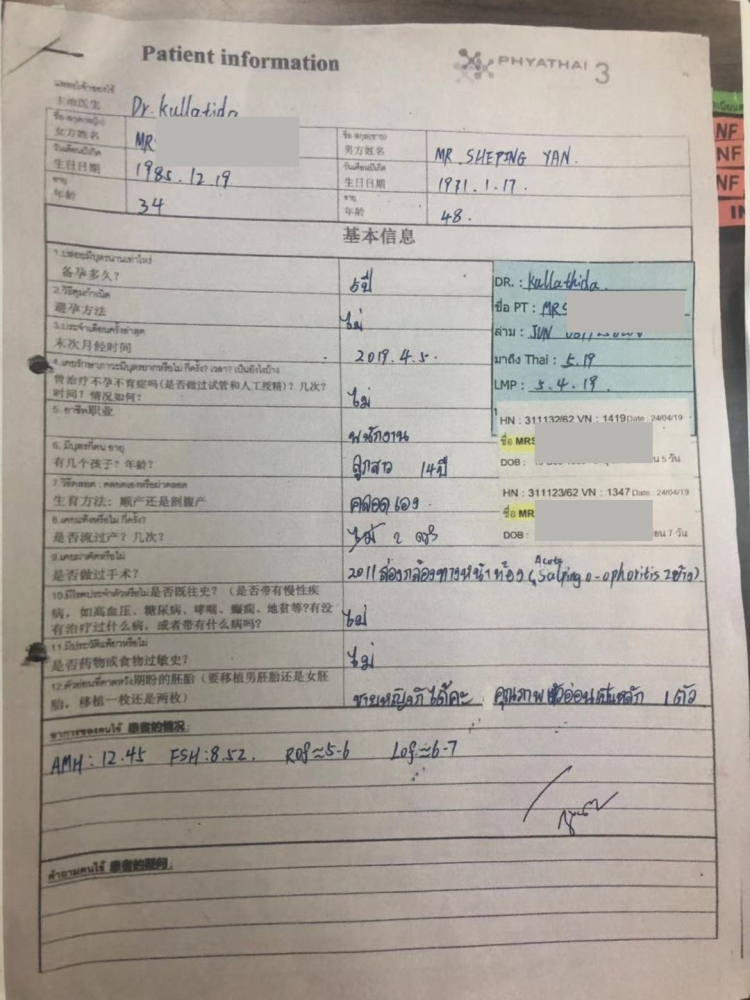 Patient information
PHYATHAI 3
แพทย์เจ้าของไข้
主治医生 Dr. kullatida
ชื่อ-สกุล(หญิง) ชื่อ-สกุล(ชาย)
女方姓名 MRS 男方姓名 MR SHEPING YAN.
วันเดือนปีเกิด วันเดือนปีเกิด
生日日期 1985.12.19 生日日期 1971.1.17.
อายุ อายุ
年龄 34 年龄 48.
基本信息
1.ปล่อยมีบุตรนานเท่าไหร่
备孕多久? 5ปี
2.วิธีคุมกำเนิด
避孕方法 ไม่
3.ประจำเดือนครั้งล่าสุด
末次月经时间 2019.4.5.
4.เคยรักษาภาวะมีบุตรยากหรือไม่ กี่ครั้ง? เวลา? เป็นยังไงบ้าง
曾治疗不孕不育症吗(是否做过试管和人工授精)?几次?
时间?情况如何? ไม่
5. อาชีพ职业 พนักงาน
6. มีบุตรกี่คน อายุ
有几个孩子?年龄? ลูกสาว 14ปี
7.วิธีคลอด : คลอดเองหรือผ่าคลอด
生育方法:顺产还是剖腹产 คลอดเอง
8.เคยแท้งหรือไม่ กี่ครั้ง?
是否流过产?几次? 2 ครั้ง
9.เคยผ่าตัดหรือไม่
是否做过手术? 2011 ส่องกล้องทางหน้าท้อง (Acute Salpingo-ophoritis 2ข้าง)
10.มีโรคประจำตัวหรือไม่ 是否既往史?(是否带有慢性疾
病,如高血压、糖尿病、哮喘、癫痫、地贫等?有没
有治疗过什么病,或者带有什么病吗? ไม่
11.มีประวัติแพ้ยาหรือไม่
是否药物或食物过敏史? ไม่
12.ตัวอ่อนที่คาดหวัง期盼的胚胎(要移植男胚胎还是女胚
胎,移植一枚还是两枚) ชายหญิงก็ได้ค่ะ คุณภาพตัวอ่อนเป็นหลัก 1ตัว
DR. : kullathida.
ชื่อ PT : MRS
ล่าม : JUN
มาถึง Thai : 5.19
LMP : 5.4.19.
HN : 311132/62 VN : 1419 Date : 24/04/19
ชื่อ MRS
DOB : น 5 วัน
HN : 311123/62 VN : 1347 Date : 24/04/19
ชื่อ MR
DOB : อน 7 วัน
อาการของคนไข้ 患者的情况:
AMH: 12.45 FSH: 8.52. Rof≈5-6 Lof≈6-7
คำถามคนไข้ 患者的疑问:
NF
NF
NF
IN